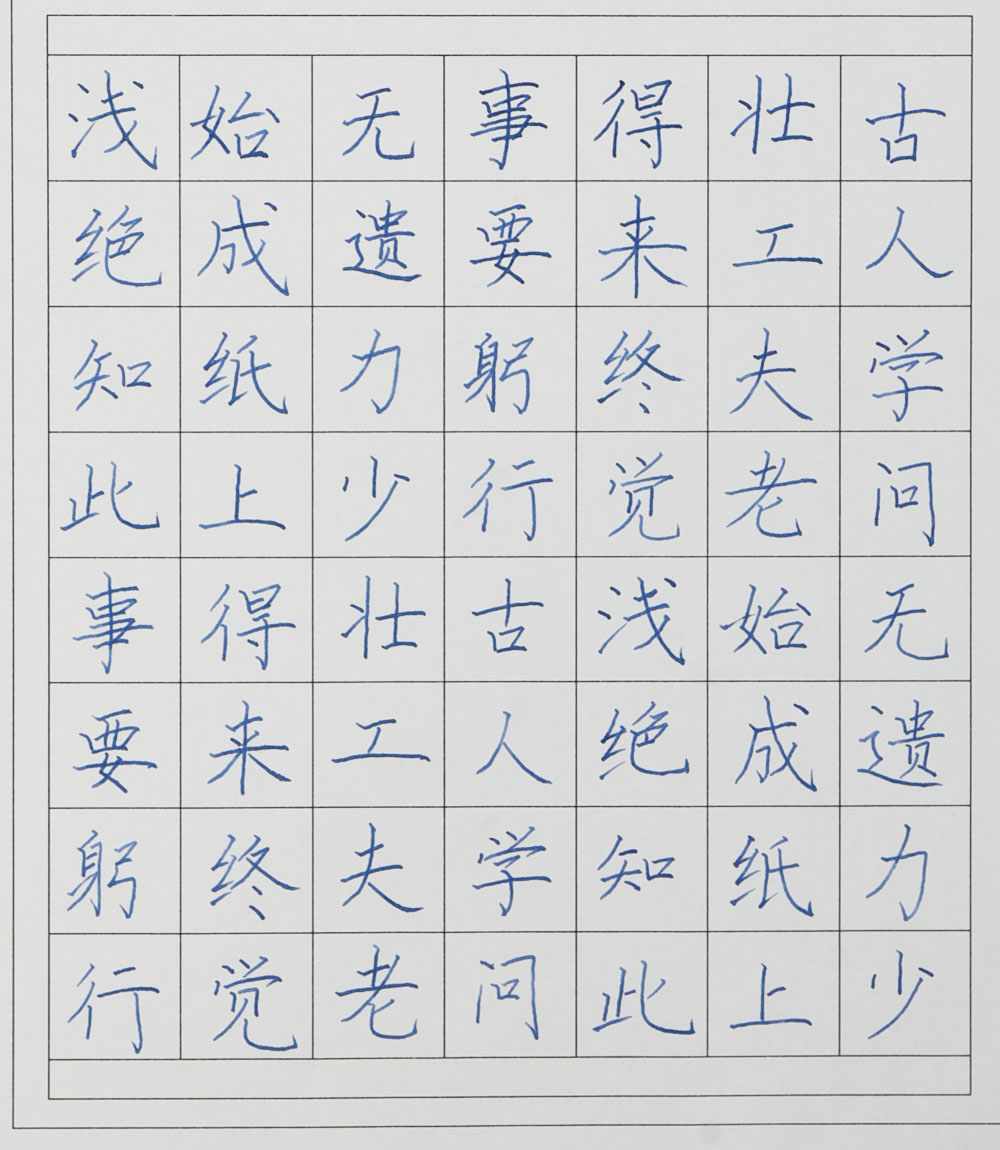 古人学问无遗力少
壮工夫老始成纸上
得来终觉浅绝知此
事要躬行古人学问
无遗力少壮工夫老
始成纸上得来终觉
浅绝知此事要躬行